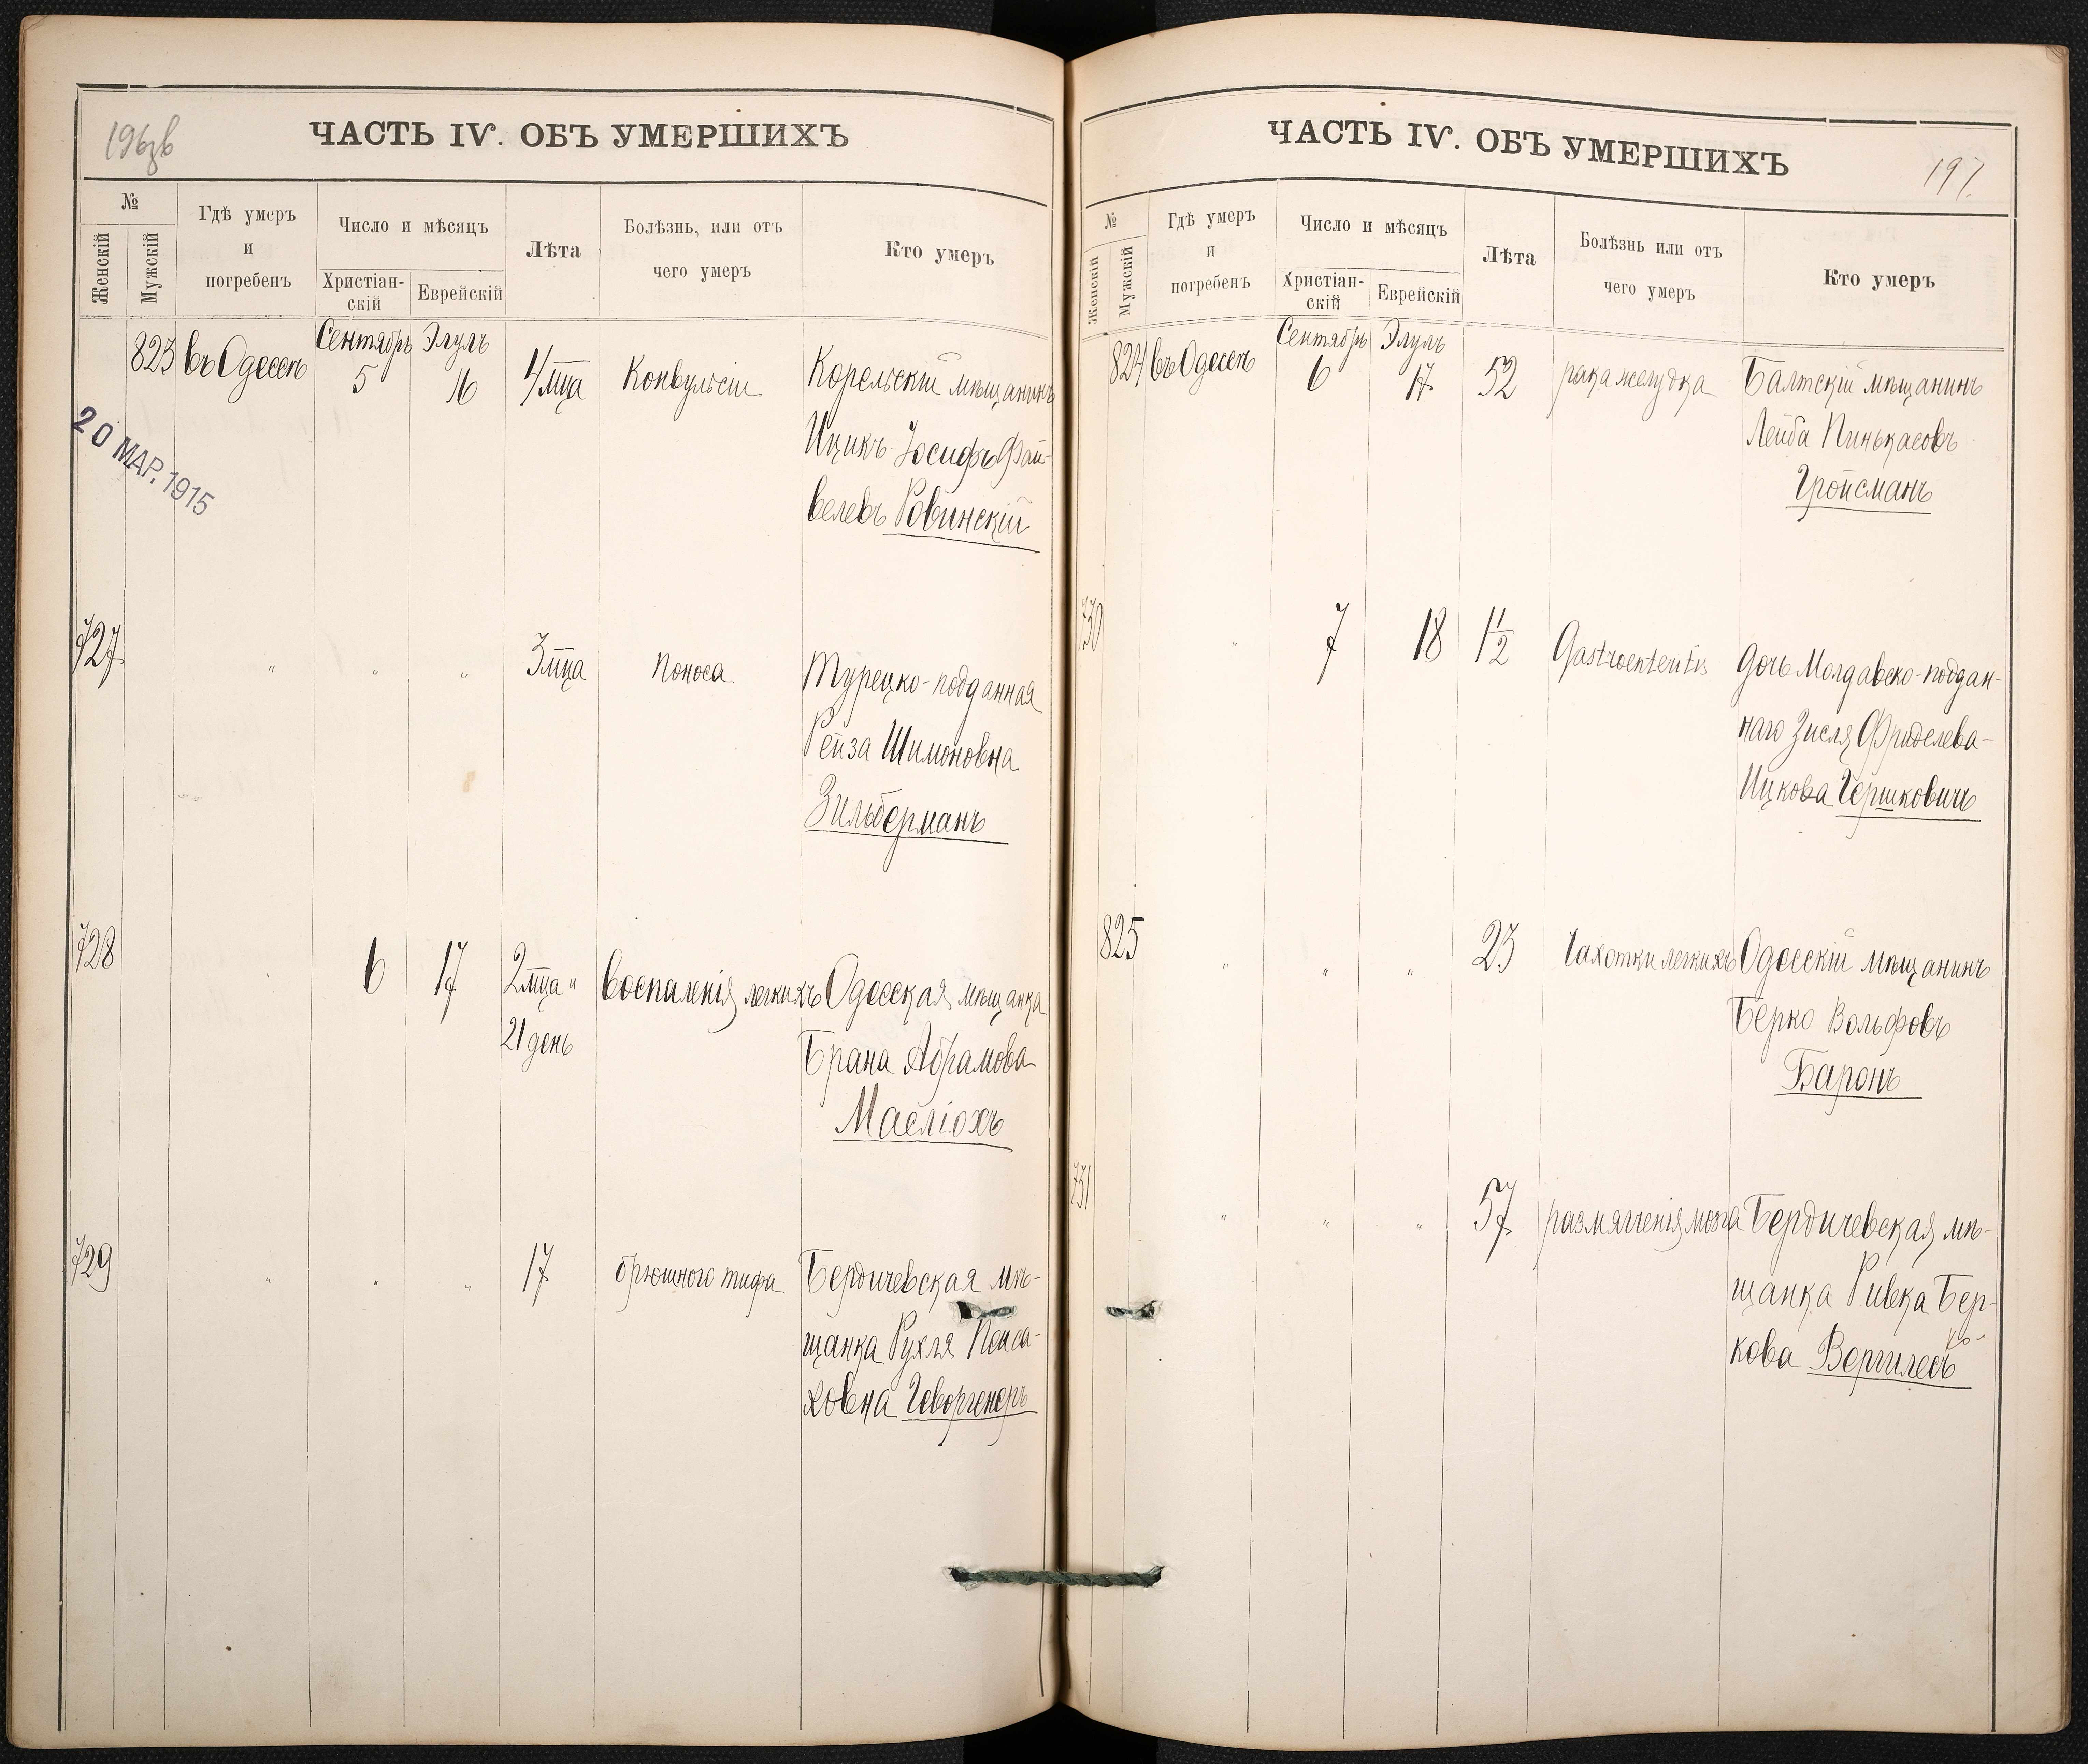 196об
ЧАСТЬ IV. ОБЪ УМЕРШИХЪ
№
Женскій
Мужскій
Гдѣ умеръ
и
погребенъ
Число и мѣсяцъ
Христіан-
скій
Еврейскій
Лѣта
Болѣзнь, или отъ
чего умеръ
Кто умеръ
Сентябрь Элулъ
823 въ Одессѣ 5 16 4 мца Конвульсіи Корельскій мѣщанинъ
Ицикъ-Іосифъ Фай-
велевъ Ровинскій
20 МАР. 1915
727 " " " 3 мца поноса Турецко-подданная
Рейза Шимоновна
Зильберманъ
728 " 6 17 2 мца " воспаленія легкихъ Одесская мѣщанка
21 день Брана Абрамова
Масліохъ
729 " " " 17 брюшного тифа Бердичевская мѣ-
щанка Рухля Пейса-
ховна
ЧАСТЬ IV. ОБЪ УМЕРШИХЪ
197.
№
Женскій
Мужскій
Гдѣ умеръ
и
погребенъ
Число и мѣсяцъ
Христіан-
скій
Еврейскій
Лѣта
Болѣзнь или отъ
чего умеръ
Кто умеръ
Сентябрь Элулъ
824 въ Одессѣ 6 17 52 рака желудка Балтскій мѣщанинъ
Лейба Пинькасовъ
Гройсманъ
730 " 7 18 1½ Gastroenteritis дочь Молдавско-поддан-
наго Зисля Фриделева-
Ицкова Гершковичъ
825 " " " 23 Чахотки легкихъ Одесскій мѣщанинъ
Берко Вольфовъ
Баронъ
731 " " " 57 размягченія мозга Бердичевская мѣ-
щанка Ривка Бер-
кова